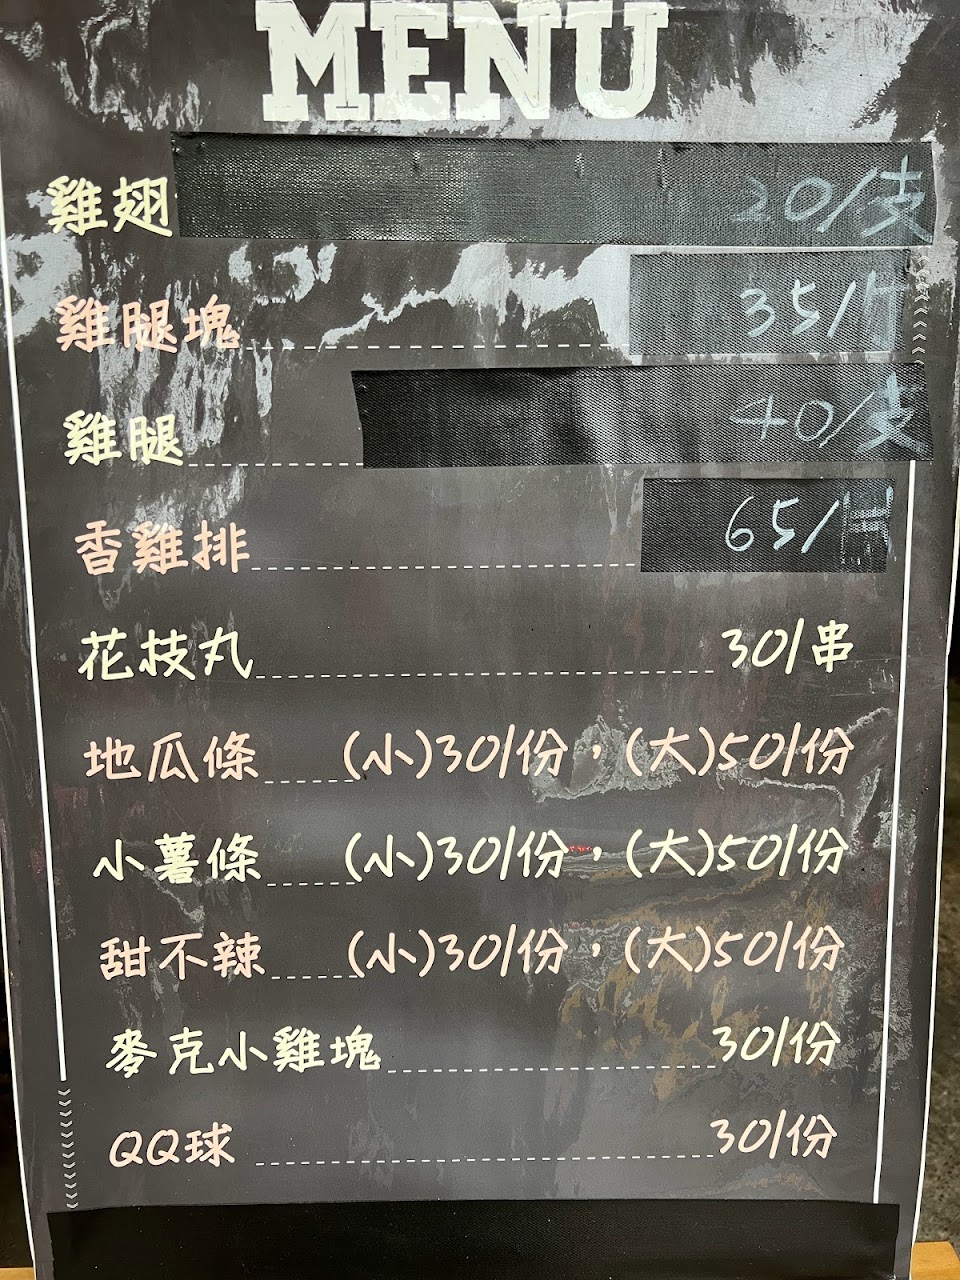 MENU
雞翅 20/支
雞腿塊 35/
雞腿 40/支
香雞排 65/
花枝丸 30/串
地瓜條 (小)30/份,(大)50/份
小薯條 (小)30/份,(大)50/份
甜不辣 (小)30/份,(大)50/份
麥克小雞塊 30/份
QQ球 30/份